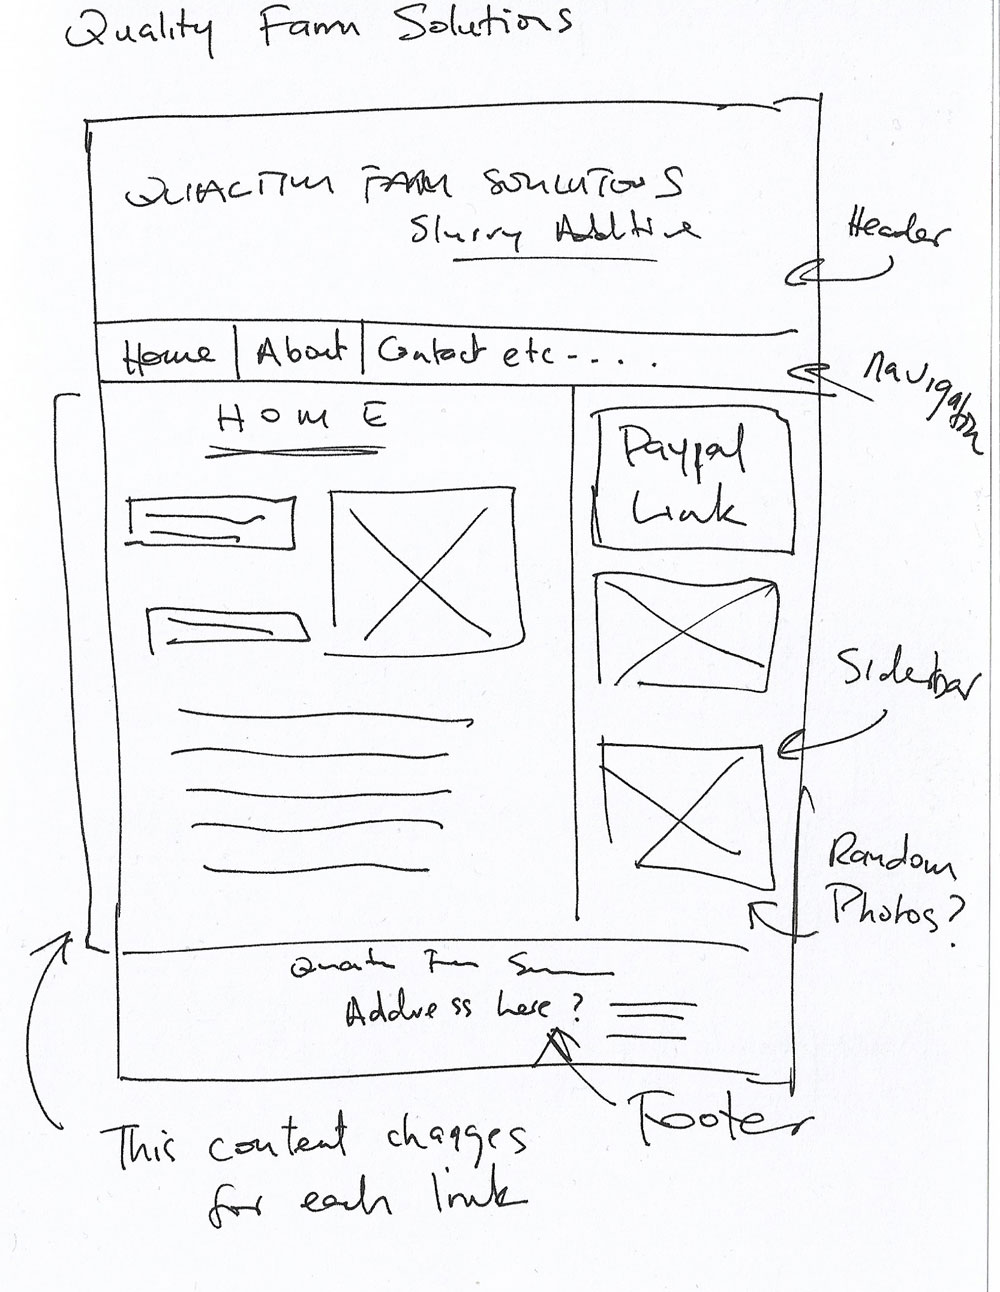 Quality Farm Solutions
QUALITY FARM SOLUTIONS
Slurry Additive
Header
Home | About | Contact etc - . . .
Navigation
HOME
Paypal
Link
Sidebar
Random
Photos?
Address here?
Footer
This content changes
for each link